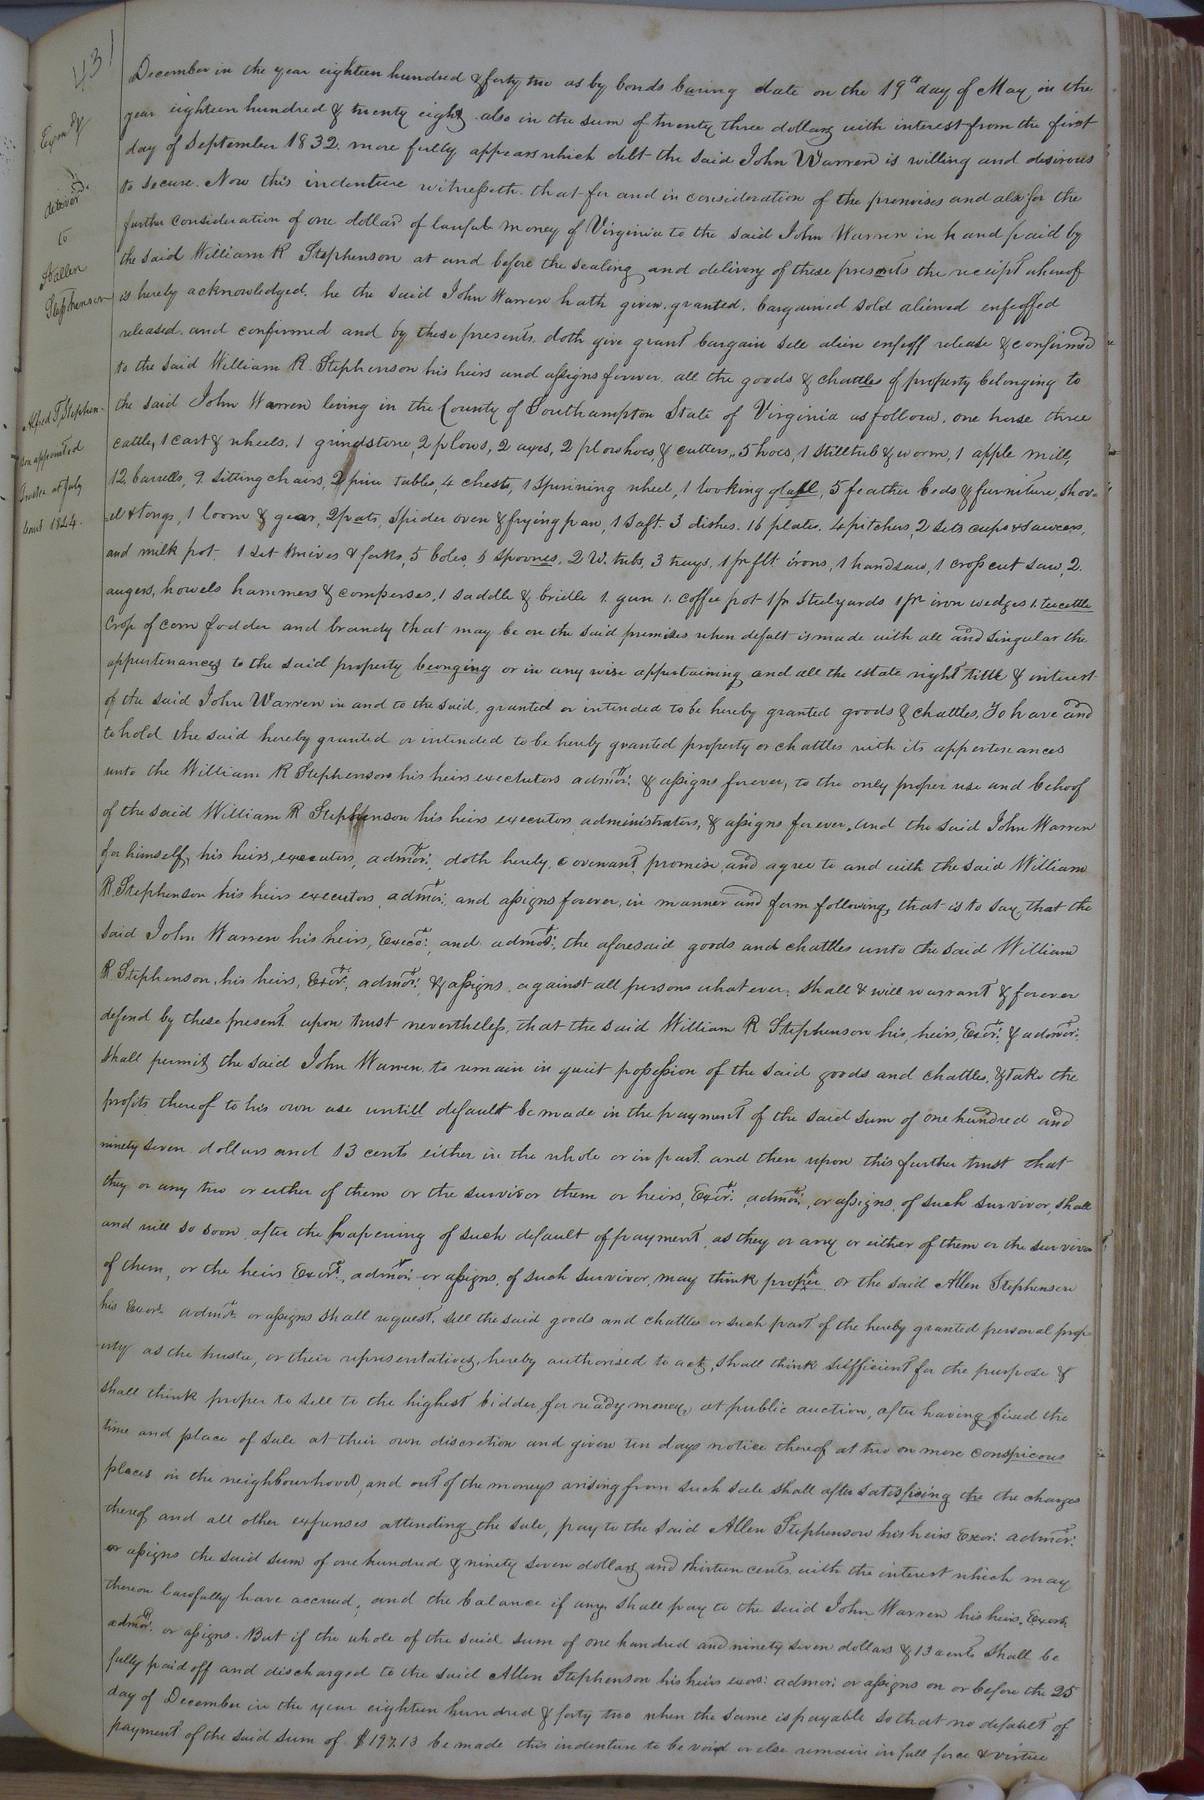 431
Exm dy
deliverd
to
Allen
Stephenson
Alfred T. Stephen-
son appointed
Trustee at July
Court 1844.
December in the year eighteen hundred & forty two as by bonds baring date on the 19th day of May in the
year eighteen hundred & twenty eight also in the sum of twenty three dollars with interest from the first
day of September 1832. more fully appears which debt the said John Warren is willing and desirous
to secure. Now this indenture witnesseth. that for and in consideration of the premises and also for the
further consideration of one dollar of lawful money of Virginia to the said John Warren in hand paid by
the said William R Stephenson at and before the sealing and delivery of these presents the receipt whereof
is hereby acknowledged. he the said John Warren hath given. granted. bargained sold aliened enfeoffed
released. and confirmed and by these presents. doth give grant bargain sell alien enfeoff release & confirmed
to the said William R. Stephenson his heirs and assigns forever. all the goods & chattles of property belonging to
the said John Warren living in the County of Southampton State of Virginia as follows. one horse three
cattle, 1 cart & wheels. 1 grindstone, 2 plows, 2 axes, 2 plowhoes, & cutters,, 5 hoes, 1 still tub & worm, 1 apple mill,
12 barrells, 9 sitting chairs, 2 pine tables, 4 chests, 1 spinning wheel, 1 looking glass, 5 feather beds & furniture, shov-
el & tongs, 1 loom & gear, 2 pots, spider oven & frying pan, 1 saft. 3 dishes. 16 plates. 4 pitchers, 2 sets cups & saucers,
and milk pot. 1 set knives & forks, 5 boles, 6 spoones, 2 W. tubs, 3 trays, 1 pr flt irons, 1 handsaw, 1 cross cut saw, 2
augers, howels hammers & comperses, 1 saddle & bridle 1. gun 1. coffee pot 1 pr Stelyards 1 pr iron wedges 1. teacettle
Crop of corn fodder and brandy that may be on the said premises when defalt is made with all and singular the
appurtenances to the said property beonging or in any wise appurtaining and all the estate right title & interest
of the said John Warren in and to the said, granted or intended to be hereby granted goods & chattles, To have and
to hold the said hereby granted or intended to be hereby granted property or chattles with its appertenances
unto the William R Stephenson his heirs exectutors admors: & assigns forever, to the only proper use and behoof
of the said William R Stephenson his heirs executors administrators, & assigns forever. And the said John Warren
for himself, his heirs, executors, admors: doth hereby, covenant, promise, and agree to and with the said William
R. Stephenson his heirs executors admors: and assigns forever, in manner and form following, that is to say, that the
said John Warren his heirs, Execo: and admors: the aforesaid goods and chattles unto the said William
R Stephenson, his heirs, Exors, admors: & assigns. against all persons whatever. shall & will warrant & forever
defend by these present upon trust nevertheless, that the said William R Stephenson his, heirs, Exors: & admors:
shall permit the said John Warren. to remain in quiet possession of the said goods and chattles, & take the
profits thereof to his own use untill default be made in the payment of the said sum of one hundred and
ninety seven dollars and 13 cents either in the whole or in part. and then upon this further trust that
they or any two or either of them or the survivor them or heirs, Exors: admors, or assigns, of such survivor, shall
and will so soon after the hapening of such default of payment, as they or any or either of them or the survivor
of them, or the heirs Exors, admors: or assigns, of such survivor, may think proper or the said Allen Stephenson
his Exors admors or assigns shall request, sell the said goods and chattles or such part of the hereby granted personal prop-
erty as the trustee, or their representatives, hereby authorised to act, shall think sufficient for the purpose &
shall think proper to sell to the highest bidder, for ready money, at public auction, after having fixed the
time and place of sale at their own discretion and given ten days notice thereof at two or more conspicous
places in the neighbourhood, and out of the moneys arising from such sale shall after satisficing the the charges
thereof and all other expenses attending the sale, pay to the said Allen Stephenson his heirs Exor: admors:
or assigns the said sum of one hundred & ninety seven dollars and thirteen cents with the interest which may
thereon lawfully have accrued, and the balance if any, shall pay to the said John Warren his heirs. Exors.
admors. or assigns. But if the whole of the said sum of one hundred and ninety seven dollars & 13 cents shall be
fully paid off and discharged to the said Allen Stephenson his heirs exors: admors: or assigns on or before the 25
day of December in the year eighteen hundred & forty two when the same is payable so that no default of
payment of the said sum of $197.13 be made this indenture to be void or else remain in full force & virtue